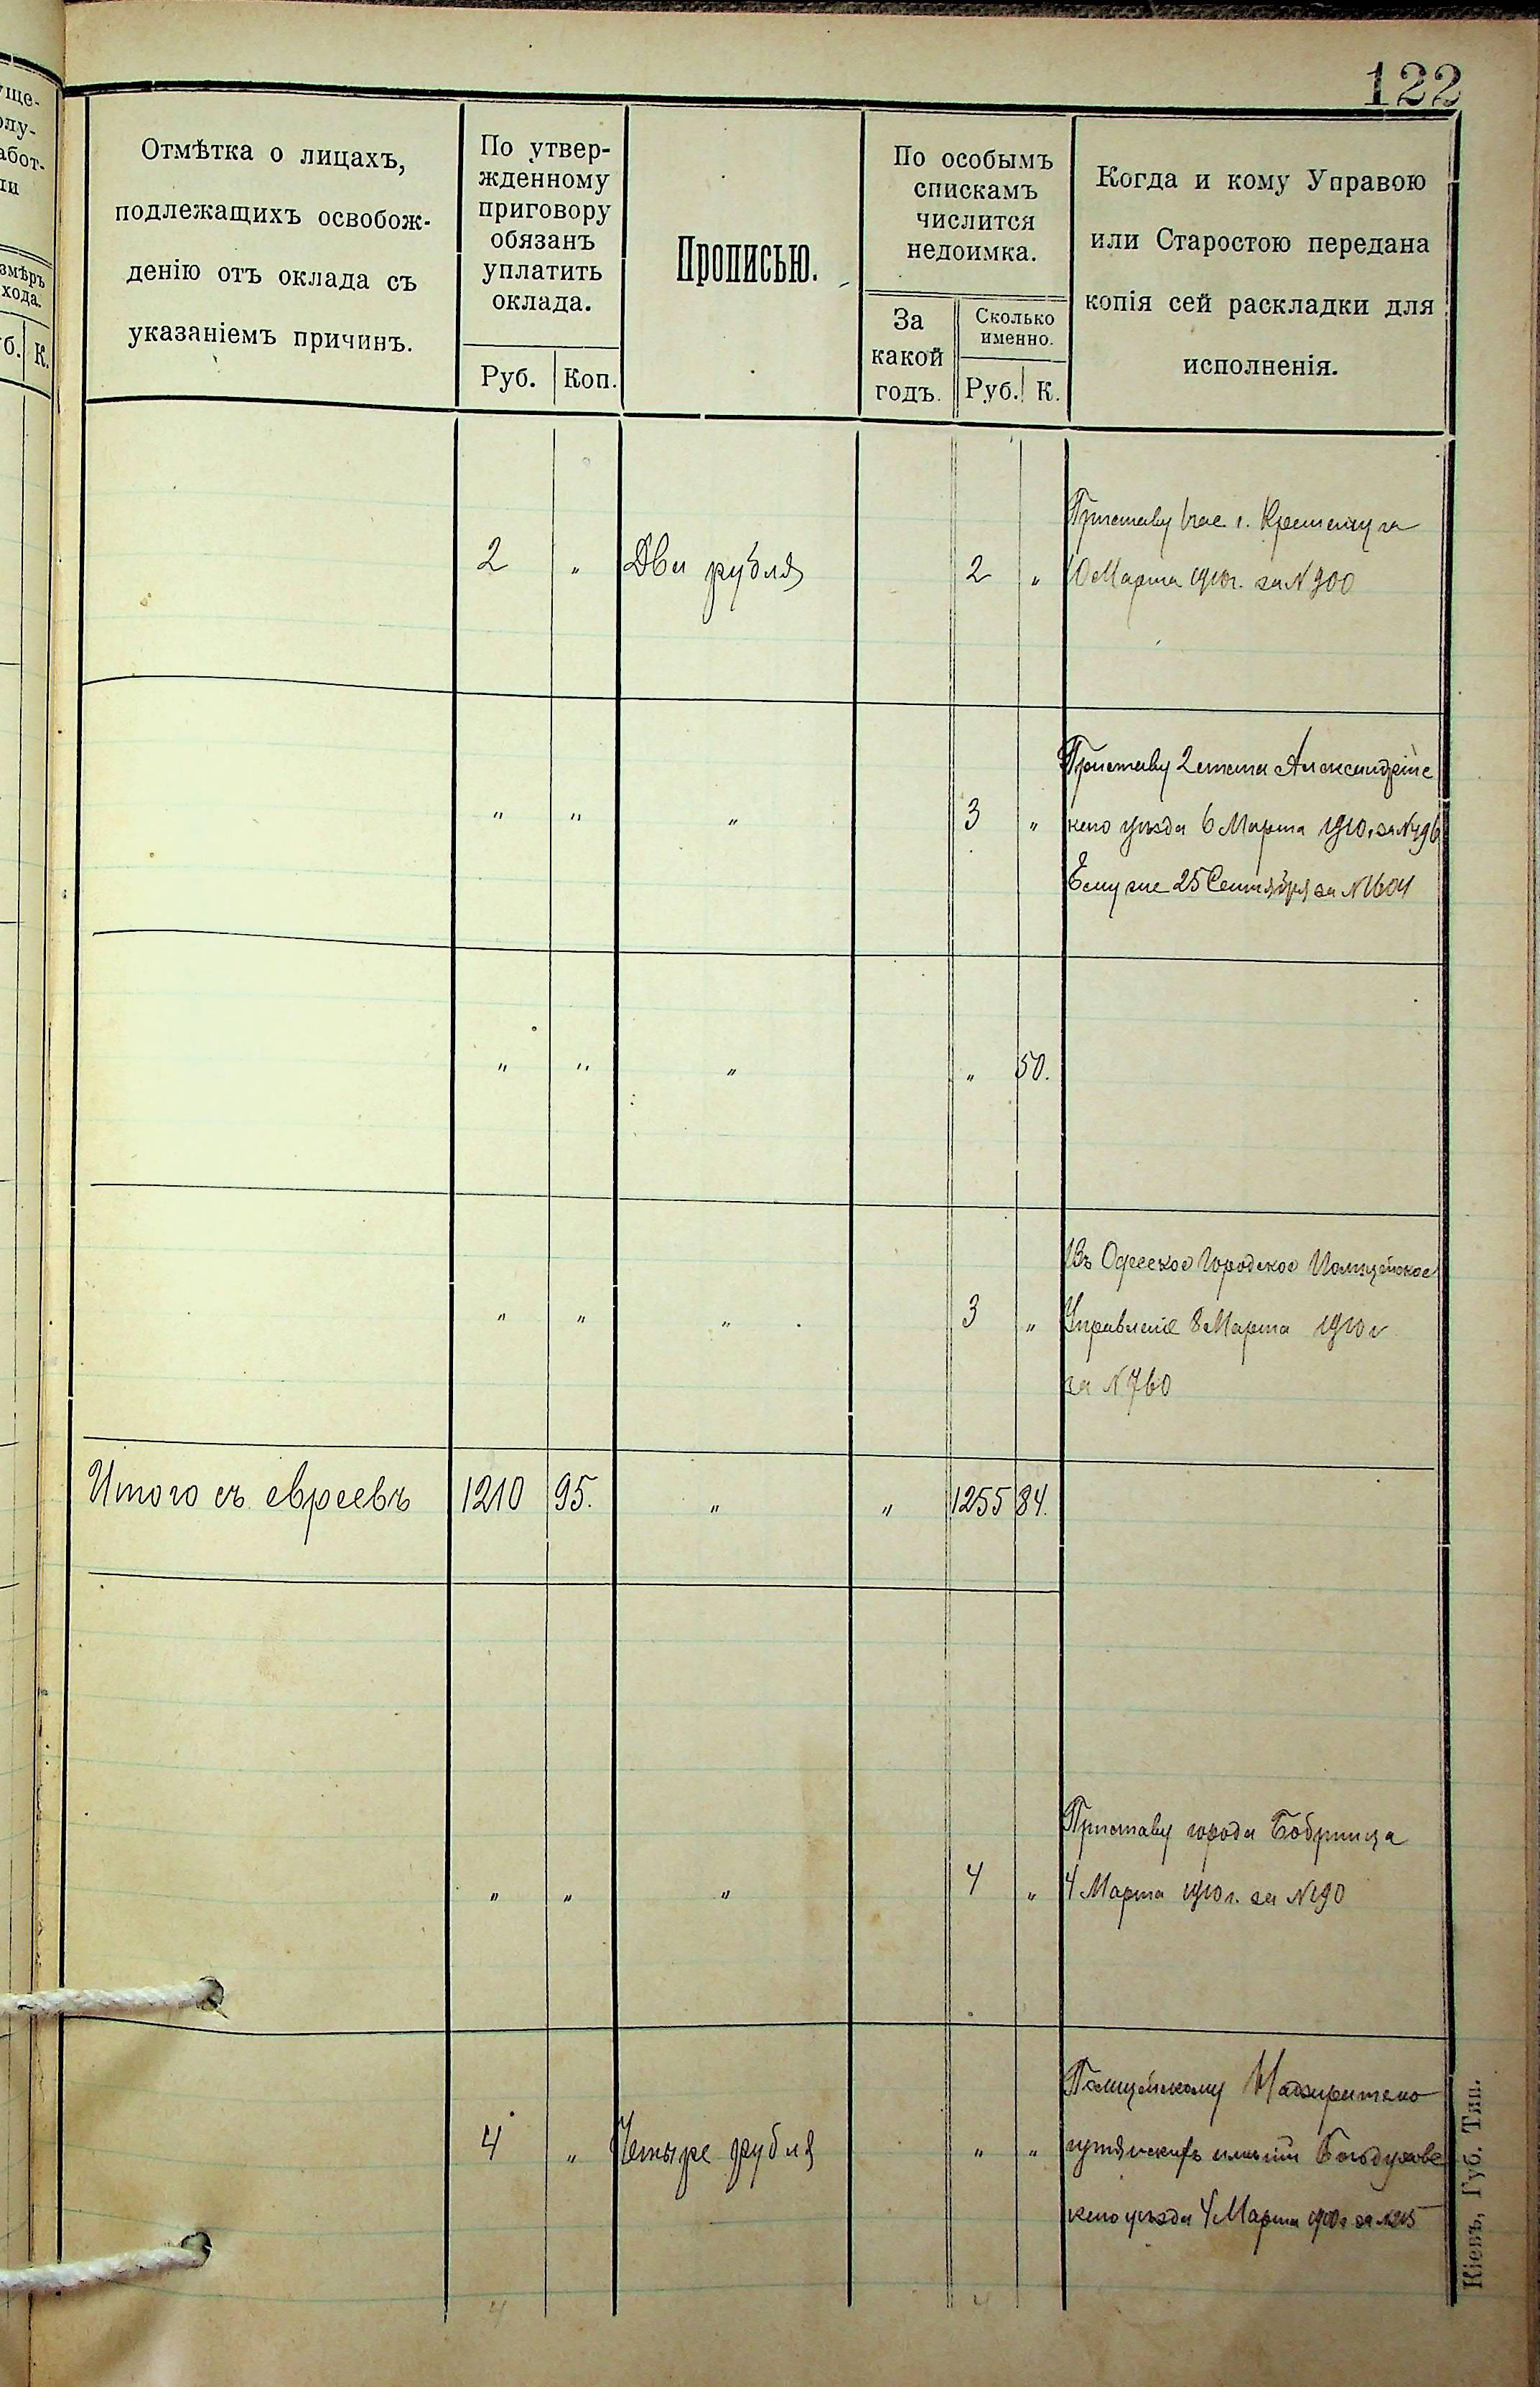 122
уще-
олу-
абот-
ли
змѣръ
хода.
б. К.
Отмѣтка о лицахъ,
подлежащихъ освобож-
денію отъ оклада съ
указаніемъ причинъ.
По утвер-
жденному
приговору
обязанъ
уплатить
оклада.
Руб. Коп.
Прописью.
По особымъ
спискамъ
числится
недоимка.
За
какой
годъ.
Сколько
именно.
Руб. К.
Когда и кому Управою
или Старостою передана
копія сей раскладки для
исполненія.
2 " Два рубля 2 "
Приставу г. Кременчуга
10 Марта 1910г. за N 900
" " " 3 "
Приставу 2 стана Александрійс
каго уѣзда 6 Марта 1910г. за N 496
Ему же 25 Сентября за N 1604
" " " " 50.
" " " 3 "
Въ Одесское Городское Полицейское
Управленіе 8 Марта 1910 г
за N 760
Итого съ евреевъ 1210 95. " " 1255 84.
" " " 4 "
Приставу города Бобринца
4 Марта 1910 г. за N 190
4 " Четыре рубля " "
Полицейскому Надзирателю
имѣній Богодуховс
каго уѣзда 4 Марта 1910 г за N 215
4 4
Кіевъ, Губ. Тип.